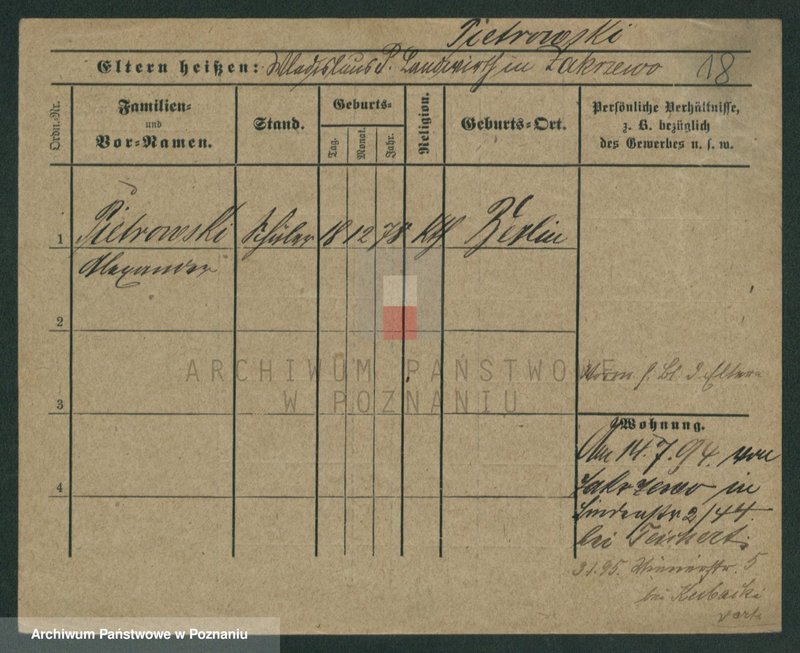 Pietrowski
Eltern heißen: Wladislaus P. Landwirth in Zakrzewo 18
Ordn.-Nr.
Familien-
und
Vor-Namen.
Stand.
Geburts-
Tag.
Monat.
Jahr.
Religion.
Geburts-Ort.
Persönliche Verhältnisse,
z. B. bezüglich
des Gewerbes u. s. w.
1 Pietrowski Schüler 18 12 78 Kth Berlin
Alexander
2
ARCHIWUM PAŃSTWOWE
W POZNANIU
f. Bl. d Eltern
3
Wohnung.
Am 14.7.94. von
Zakrzewo in
Lindenstr. 2/44
bei Teichert.
4
3.1.95. 5
bei Kubacki
Archiwum Państwowe w Poznaniu